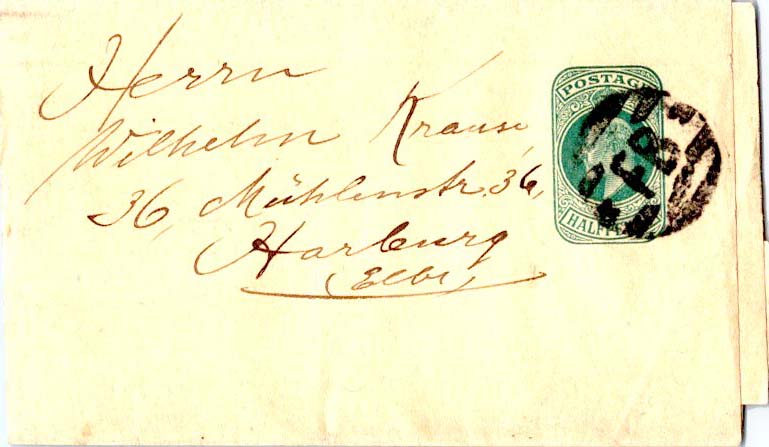 Herrn
Wilhelm Krause,
36, Mühlenstr. 36,
Harburg
(Elbe)
POSTAGE
HALFPENNY